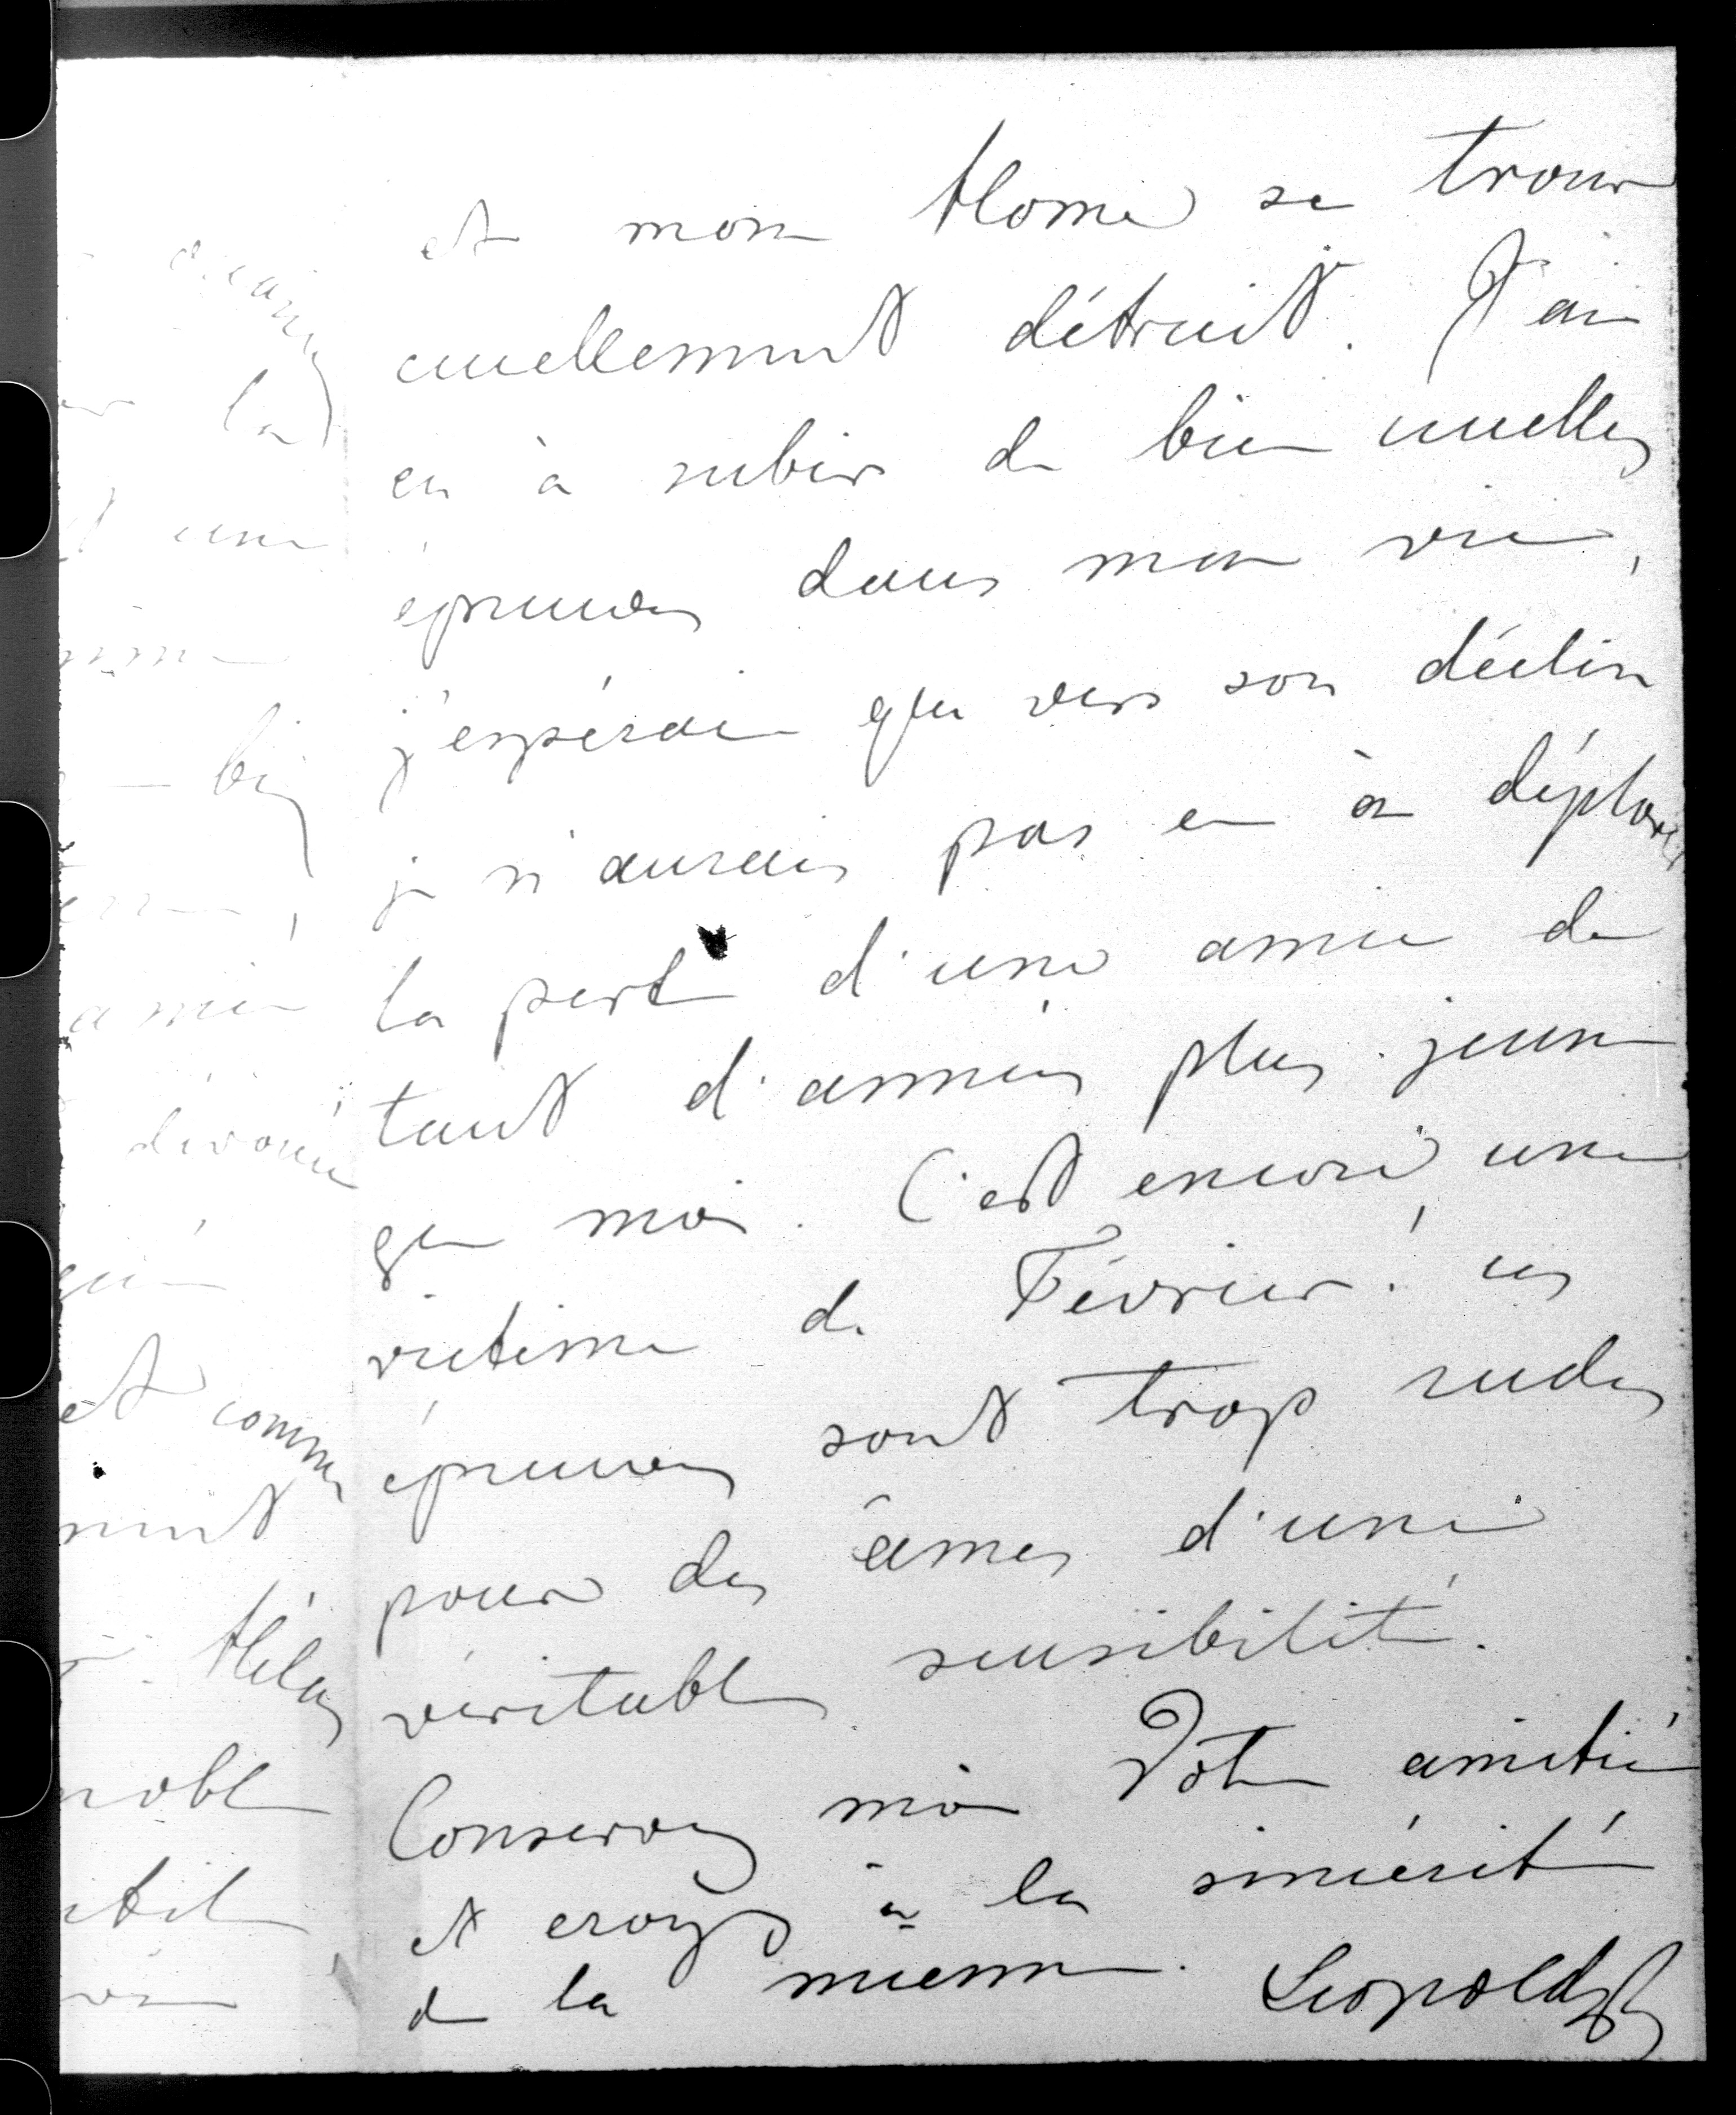 et mon Home se trouve
cruellement détruit. J'ai
eu à subir de bien cruelles
épreuves dans ma vie,
j'espérais que vers son déclin
je n'aurais pas eu à déplorer
la perte d'une amie de
tant d'années plus jeune
que moi. C'est encore une
victime de Février! ces
épreuves sont trop rudes
pour des âmes d'une
véritable sensibilité.
Conservez moi Votre amitié
et croyez à la sincérité
de la mienne. Leopold
la
une
bien
amie
dévouée
qui
et comme
Hélas
noble